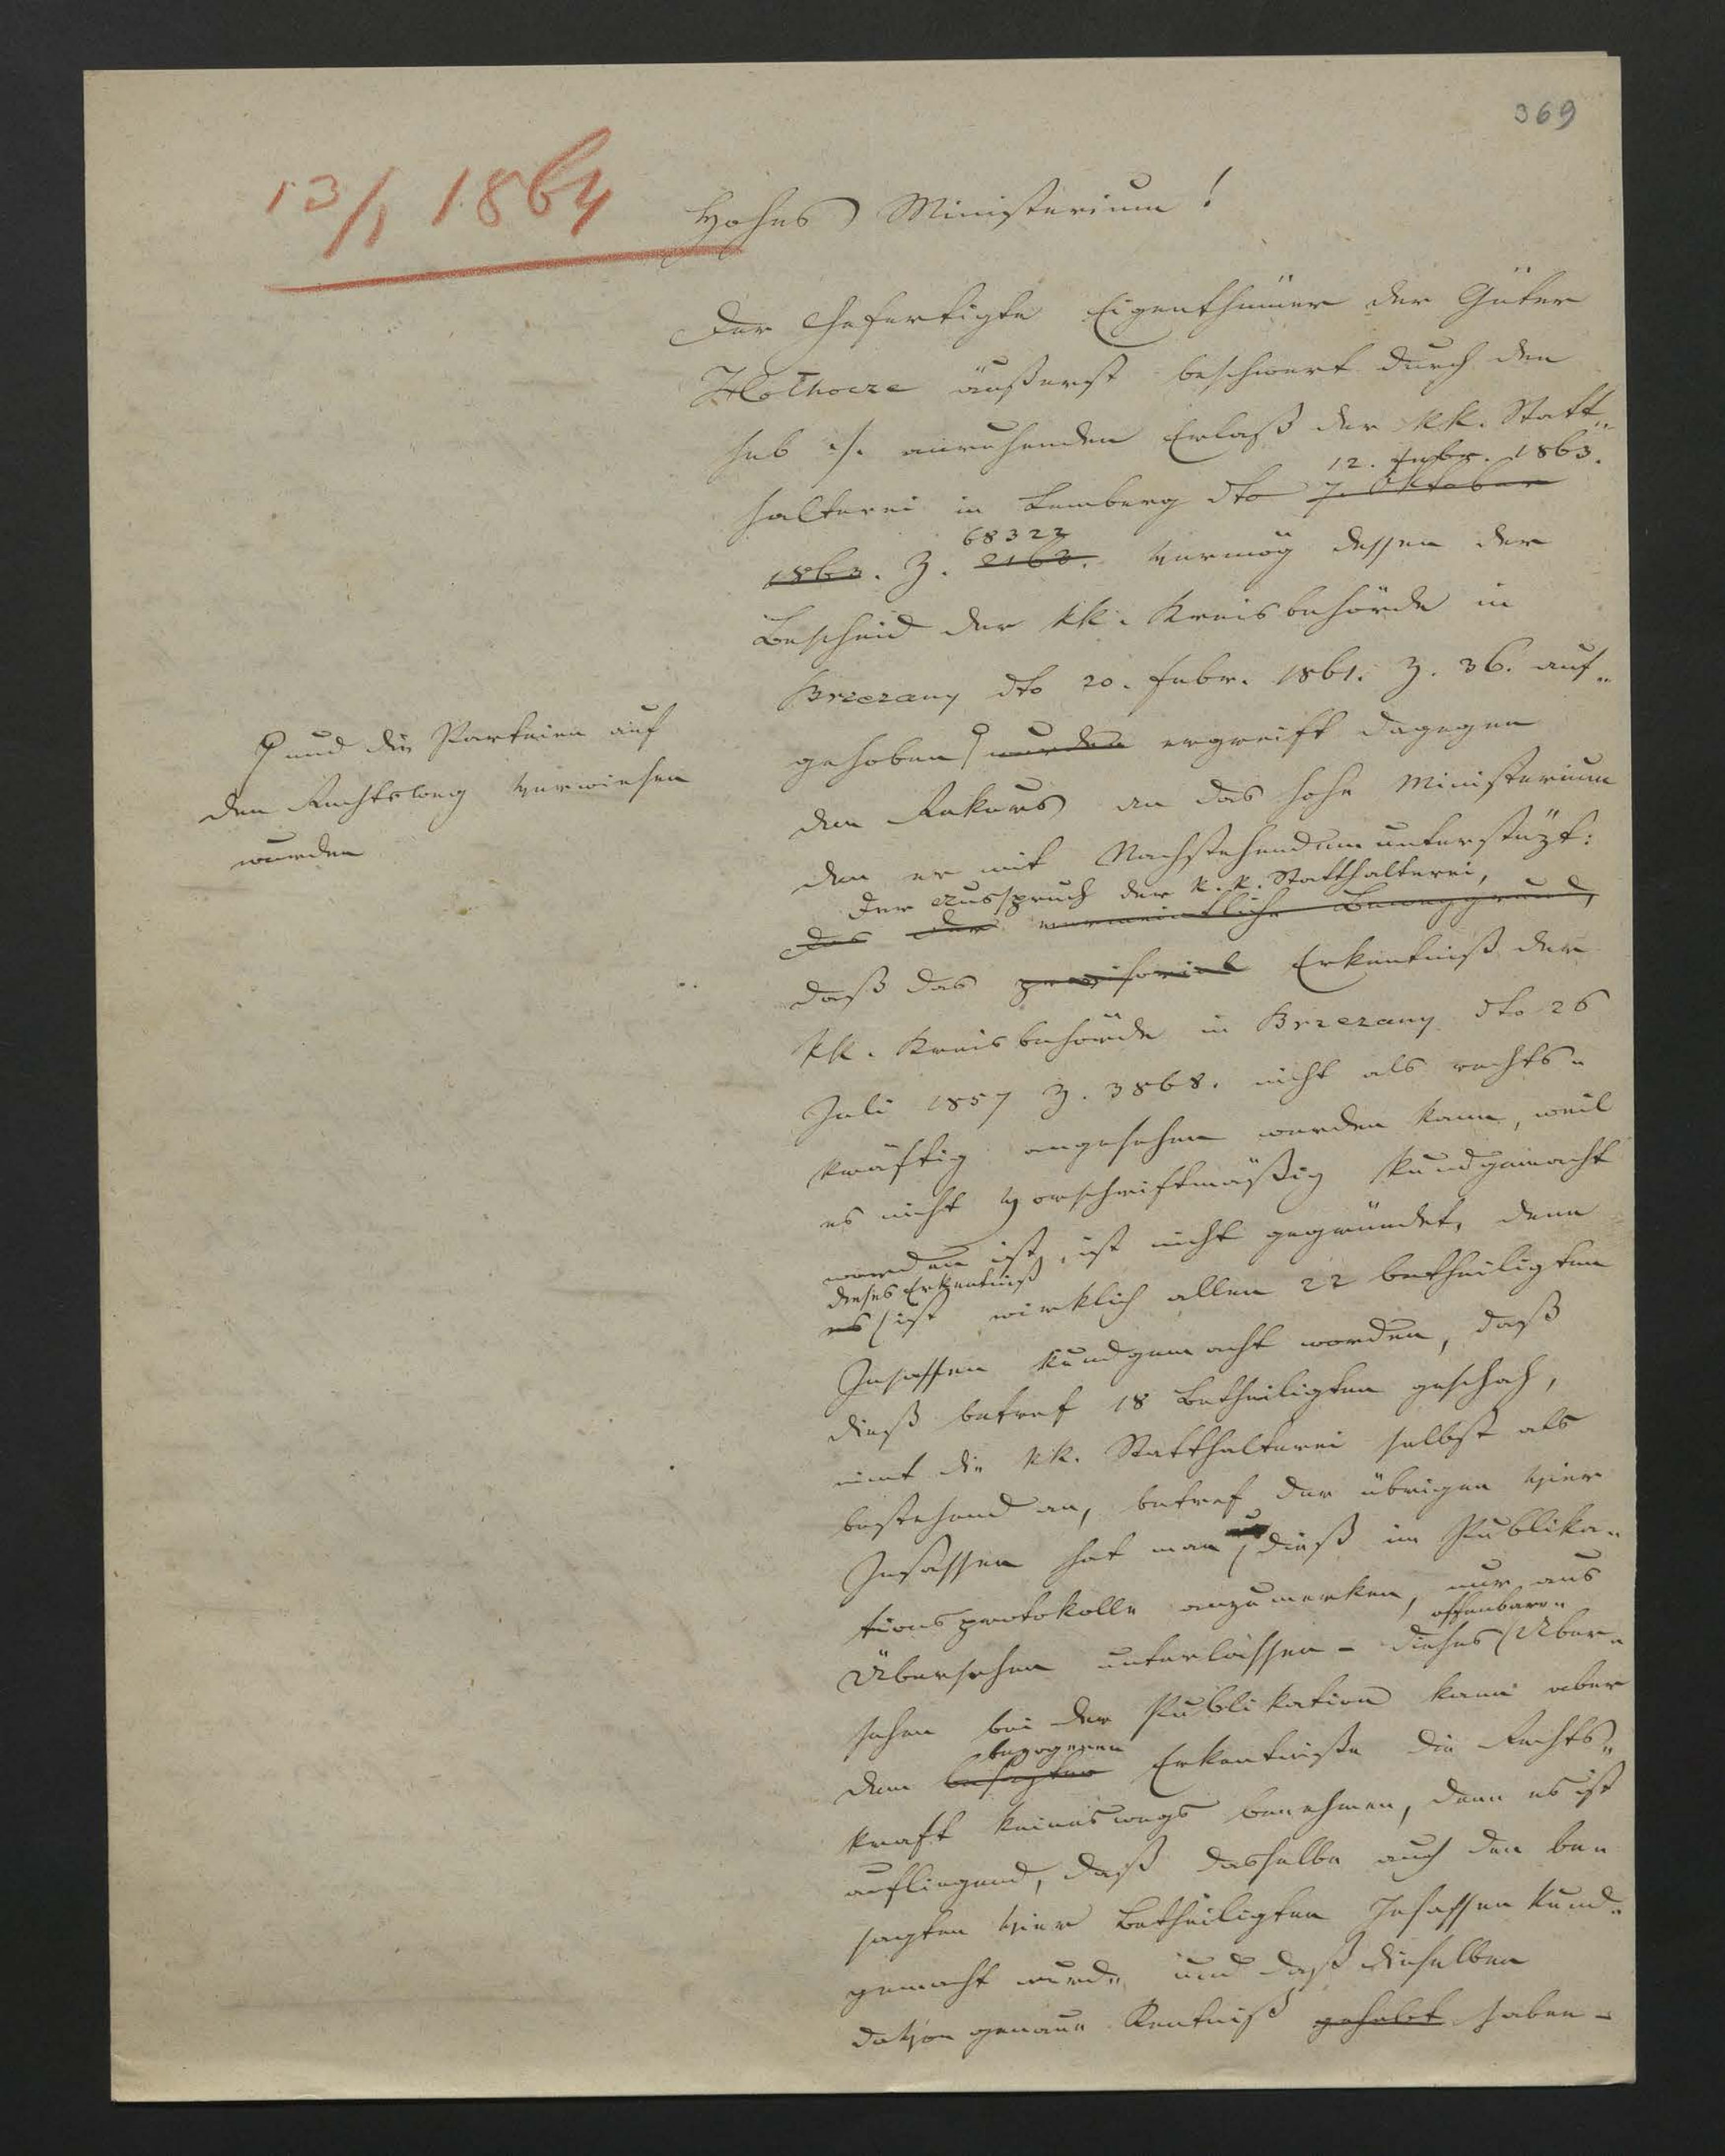 369
13/1 1864
Hohes Ministerium!
Der Gefertigte Eigenthümer der Güter
äußerst beschwert durch den
sub ./. anruhenden Erlaß der kk. Statt„
12. 1863.
halterei in Lemberg dto 7. Oktober
68322
1863. Z. 2160. vermög dessen der
Bescheid der kk. Kreisbehörde in
Brzezany dto 20. Febr. 1861. Z. 36. auf„
gehoben wurden ergreift dagegen
und die Parteien auf
den Rechtsweg verwiesen
wurden
den Rekurs an das hohe Ministerium
den er mit Nachstehendem unterstüzt:
Der Ausspruch der k. k. Statthalterei,
Das der vermeintliche Beweggrund,
daß das provisorial Erkentniß der
kk. Kreisbehörde in Brzezany dto 26
Juli 1857 Z. 3868. nicht als rechts„
kräftig angesehen werden kann, weil
es nicht vorschriftmäßig kundgemacht
worden ist, ist nicht gegründet, denn
dieses Erkentniß
es ist wirklich allen 22 betheiligten
Insassen kundgemacht worden, daß
dieß betref 18 Betheiligten geschah,
nimt die kk. Statthalterei selbst als
bestehend an, betref der übrigen vier
Insassen hat man dieß im Publika„
tionsprotokolle anzumerken, nur aus
offenbare
Übersehen unterlassen – dieses Über„
sehen bei der Publikation kann aber
bezogenen
dem besagten Erkentniße die Rechts„
kraft keineswegs benehmen, denn es ist
aufliegend, daß dasselbe auch den be„
sagten vier Betheiligten Insassen kund„
gemacht wurde und daß dieselben
davon genaue Kentniß gehabt haben –